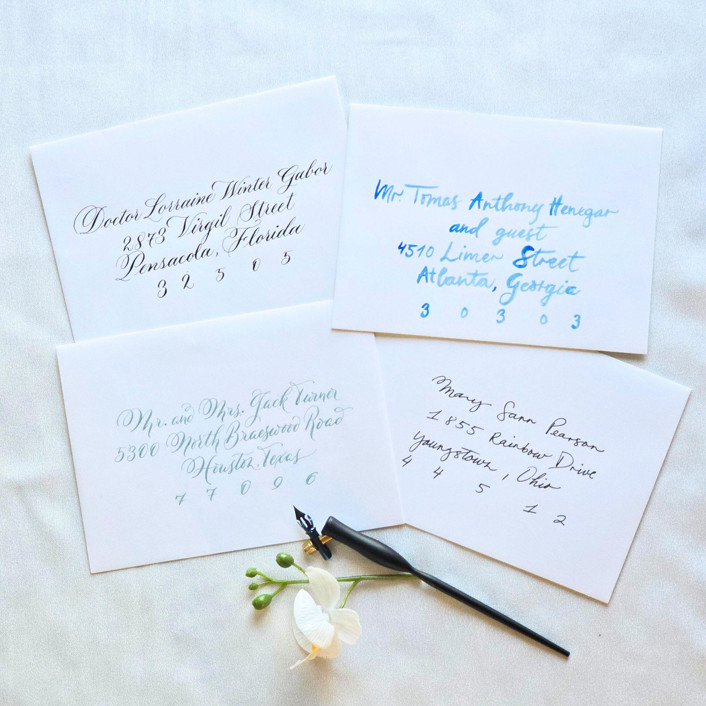 Doctor Lorraine Winter Gabor
2873 Virgil Street
Pensacola, Florida
3 2 5 0 5
Mr. Tomas Anthony Henegar
and guest
4510 Limer Street
Atlanta, Georgia
3 0 3 0 3
Mr. and Mrs. Jack Turner
5300 North Braeswood Road
Houston, Texas
7 7 0 9 6
Mary Sann Pearson
1855 Rainbow Drive
Youngstown, Ohio
4 4 5 1 2